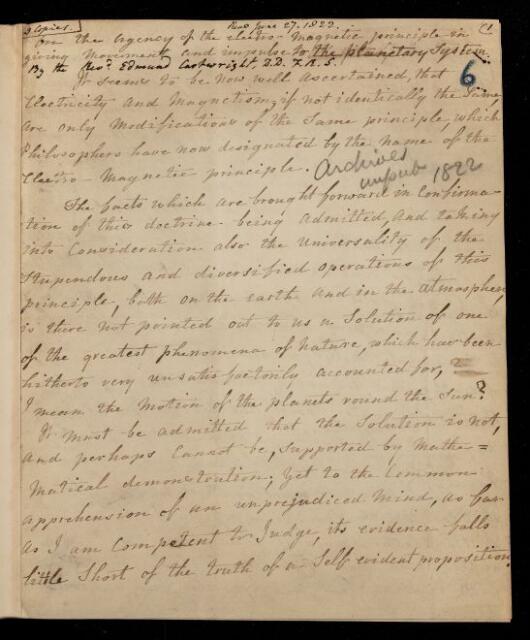 3 Copies. Read June 27. 1822. (1
On the Agency of the electro-magnetic principle in
giving movement and impulse to the planetary System.
By the Revd. Edmund Cartwright D.D. F.R.S.
6
It seems to be now well ascertained, that
Electricity and Magnetism, if not identically the same,
are only modifications of the same principle, which
Philosophers have now designated by the name of the
Electro-Magnetic principle.
Archives
unpub 1822
The facts which are brought forward in confirma-
tion of this doctrine being admitted, and taking
into Consideration also the Universality of the
Stupendous and diversified operations of this
principle, both on the earth and in the atmosphere,
is there not pointed out to us a Solution of one
of the greatest phenomena of Nature, which have been
hitherto very unsatisfactorily accounted for,
I mean the Motion of the planets round the Sun?
It must be admitted that the Solution is not,
and perhaps Cannot be, supported by Mathe=
matical demonstration; Yet to the Common
apprehension of an unprejudiced Mind, as far
as I am Competent to Judge, its evidence falls
little Short of the truth of a Self evident proposition.